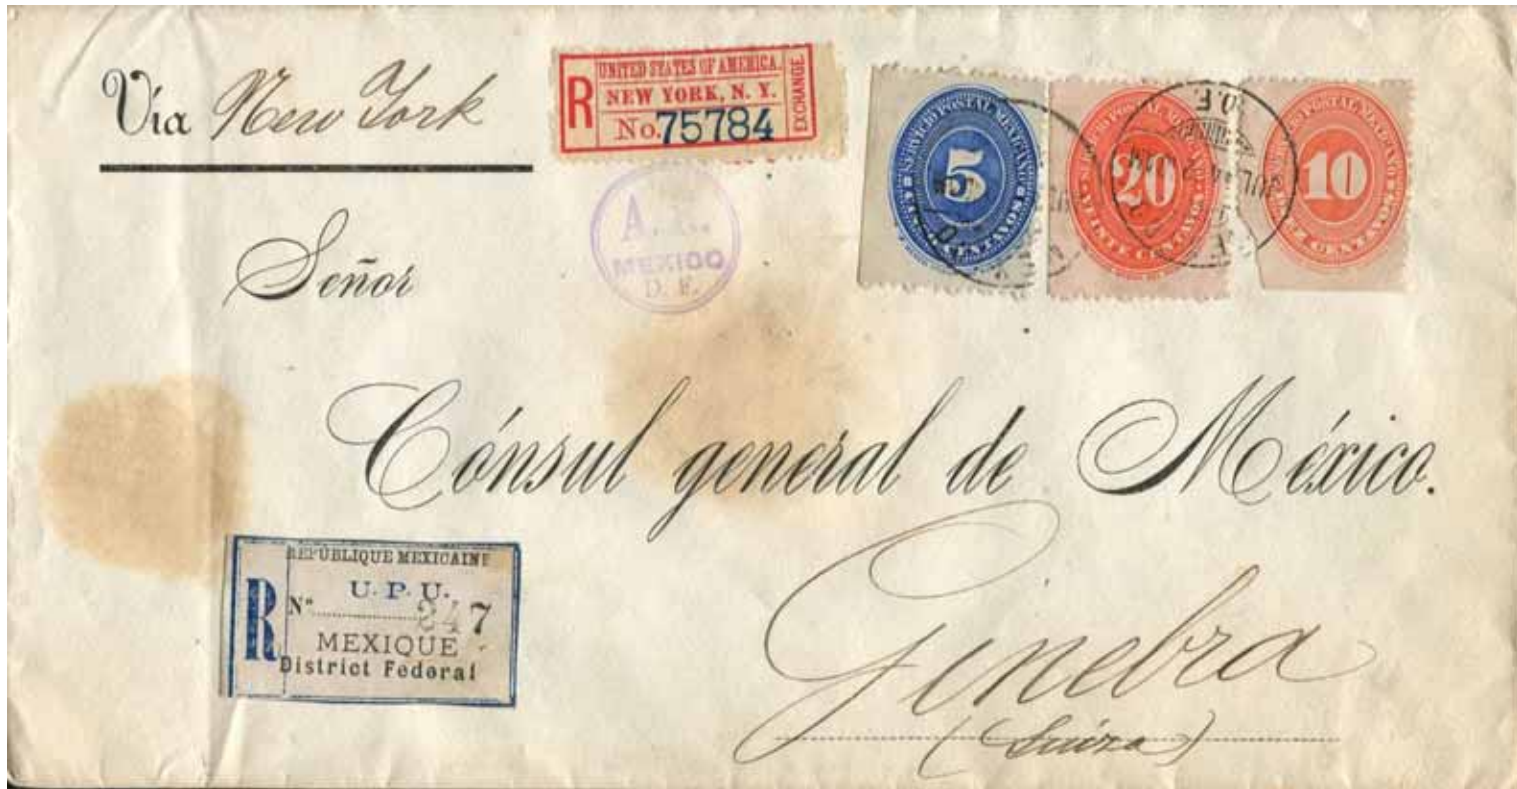 Vía New York
UNITED STATES OF AMERICA.
R NEW YORK, N. Y.
No. 75784
EXCHANGE
A. R.
MEXICO
D. F.
SERVICIO POSTAL MEXICANO
5
CENTAVOS
SERVICIO POSTAL MEXICANO
20
VEINTE CENTAVOS
SERVICIO POSTAL MEXICANO
10
DIEZ CENTAVOS
JUL
D.F.
Señor
Cónsul general de México.
Ginebra
(Suiza)
REPÚBLIQUE MEXICAINE
U. P. U.
R Nº 247
MEXIQUE
District Federal